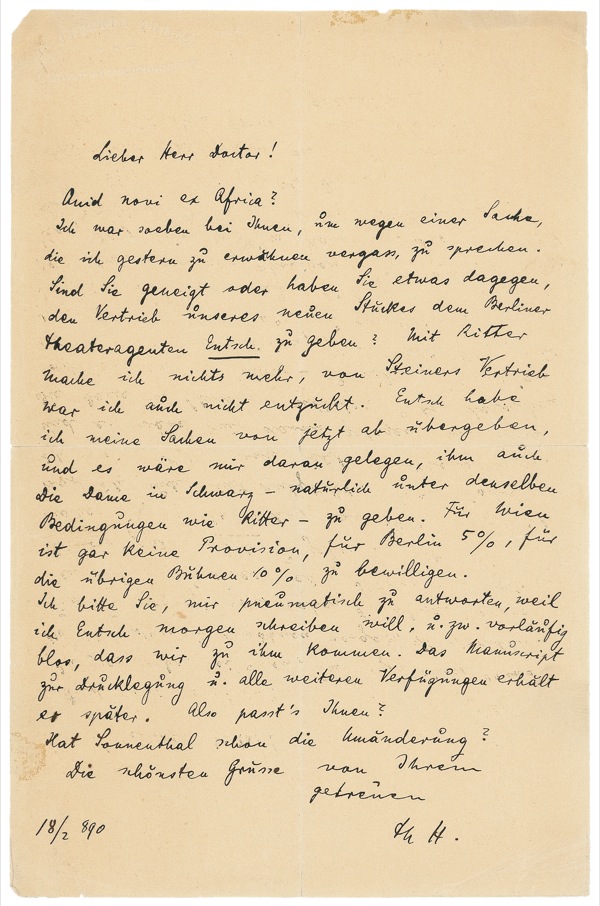 Lieber Herr Doctor!
Quid novi ex Africa?
Ich war soeben bei Ihnen, um wegen einer Sache,
die ich gestern zu erwähnen vergass, zu sprechen.
Sind Sie geneigt oder haben Sie etwas dagegen,
den Vertrieb unseres neuen Stückes dem Berliner
Theateragenten Entsch zu geben? Mit Ritter
mache ich nichts mehr, von Steiners Vertrieb
war ich auch nicht entzückt. Entsch habe
ich meine Sachen von jetzt ab übergeben,
und es wäre mir daran gelegen, ihm auch
Die Dame in Schwarz – natürlich unter denselben
Bedingungen wie Ritter – zu geben. Für Wien
ist gar keine Provision, für Berlin 5%, für
die übrigen Bühnen 10% zu bewilligen.
Ich bitte Sie, mir pneumatisch zu antworten, weil
ich Entsch morgen schreiben will, u. zw. vorläufig
blos, dass wir zu ihm kommen. Das Manuscript
zur Drucklegung u. alle weiteren Verfügungen erhält
er später. Also passt's Ihnen?
Hat Sonnenthal schon die Umänderung?
Die schönsten Grüsse von Ihrem
getreuen
18/2 890 Th H.